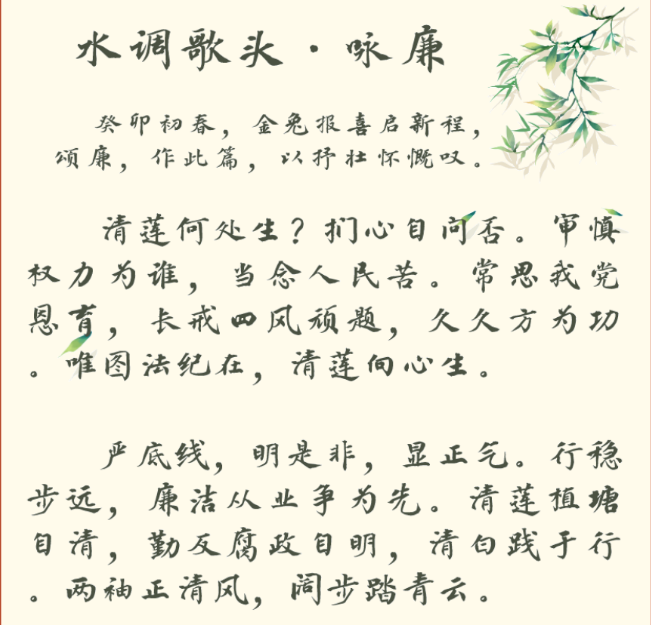 水调歌头·咏廉
癸卯初春，金兔报喜启新程，
颂廉，作此篇，以抒壮怀慨叹。
清莲何处生？扪心自问否。审慎
权力为谁，当念人民苦。常思我党
恩育，长戒四风顽题，久久方为功
。唯图法纪在，清莲向心生。
严底线，明是非，显正气。行稳
步远，廉洁从业争为先。清莲植塘
自清，勤反腐政自明，清白践于行
。两袖正清风，阔步踏青云。